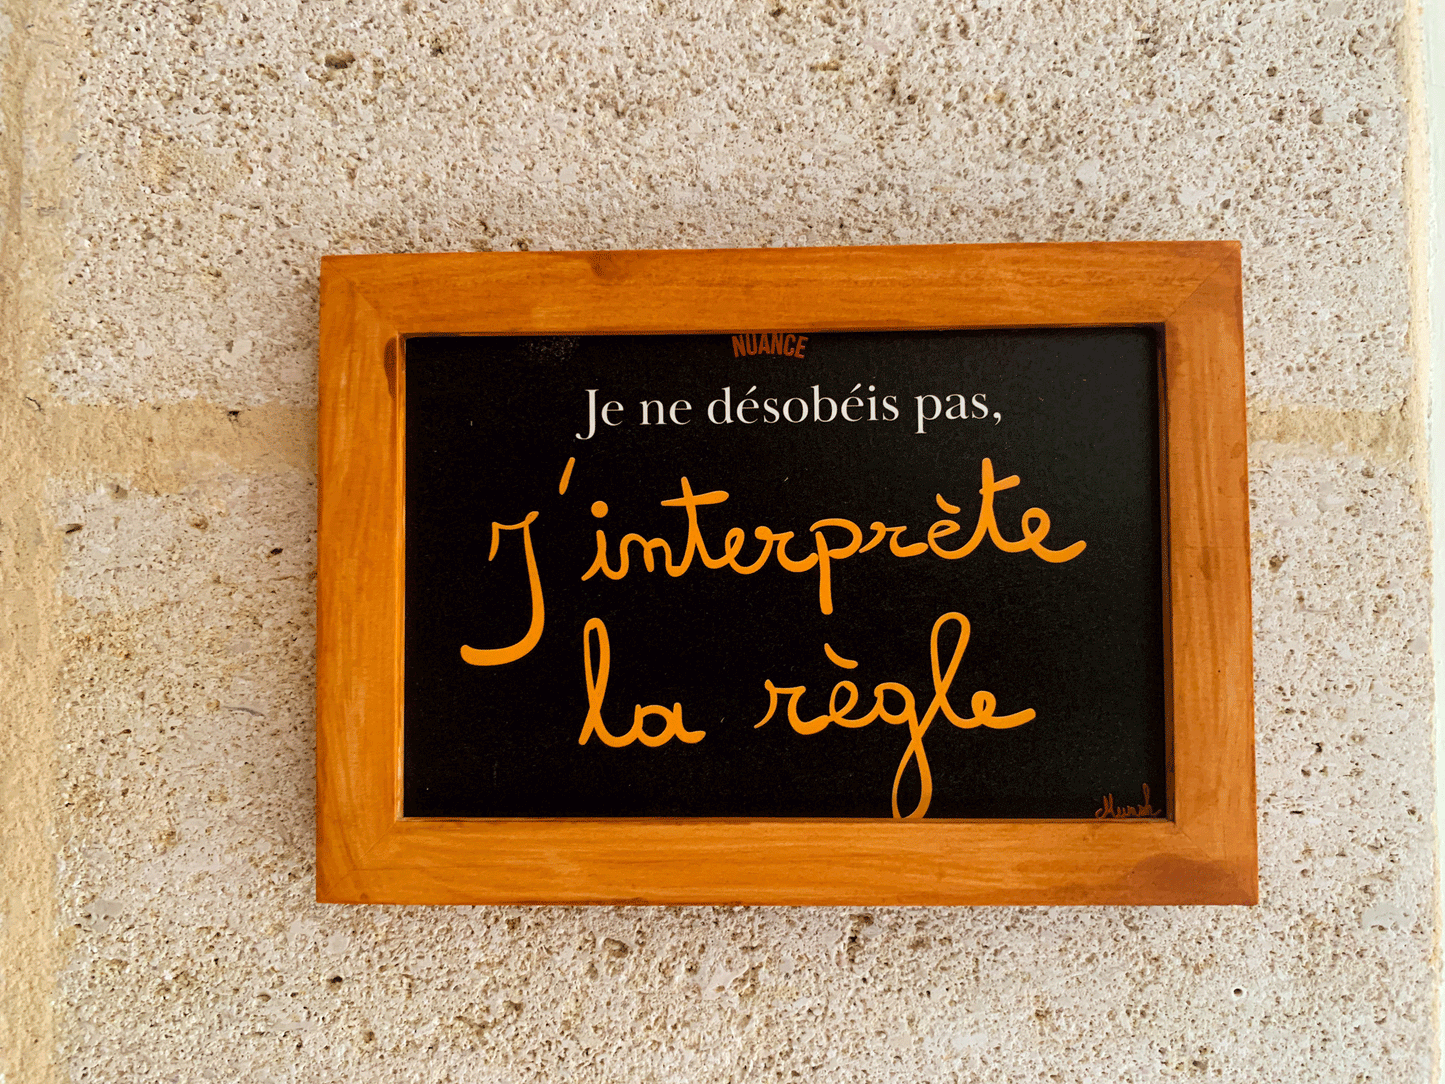 NUANCE
Je ne désobéis pas,
J'interprète
la règle